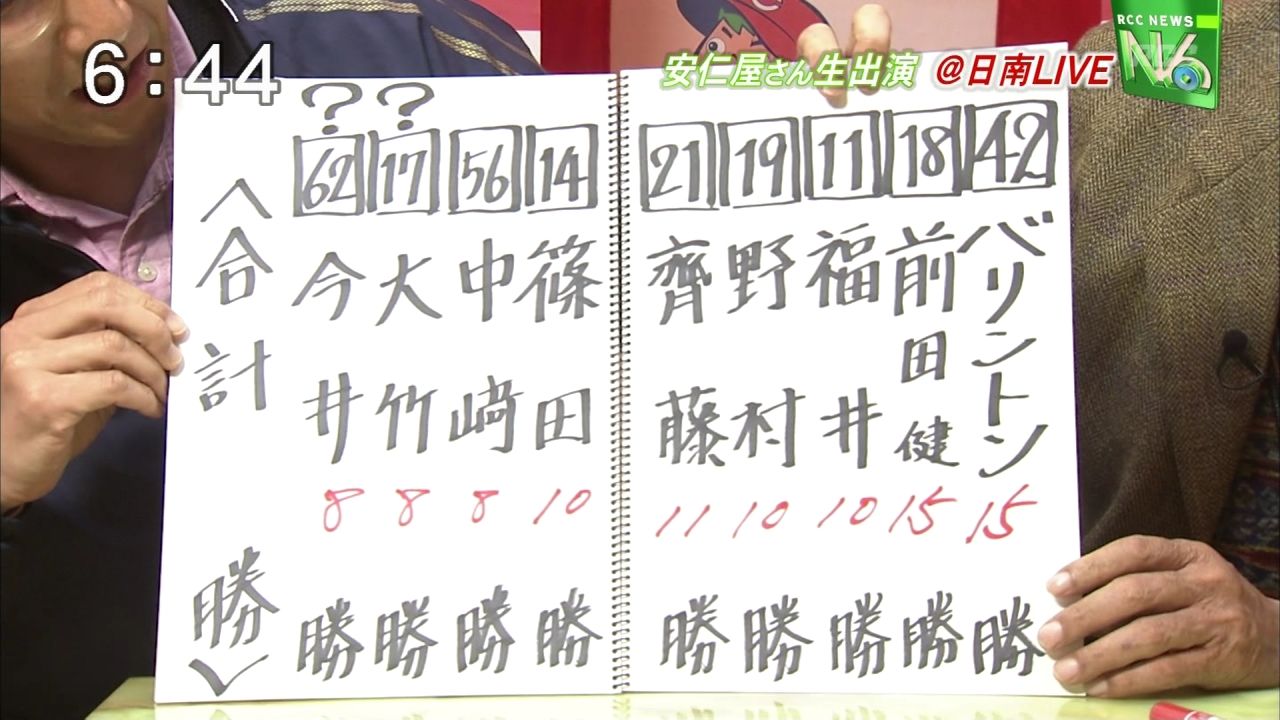 6:44
RCC NEWS
N6
安仁屋さん生出演 @日南LIVE
42 バリントン 15 勝
18 前田健 15 勝
11 福井 10 勝
19 野村 10 勝
21 齊藤 11 勝
14 篠田 10 勝
56 中﨑 8 勝
? 17 大竹 8 勝
? 62 今井 8 勝
〈合計 勝〉